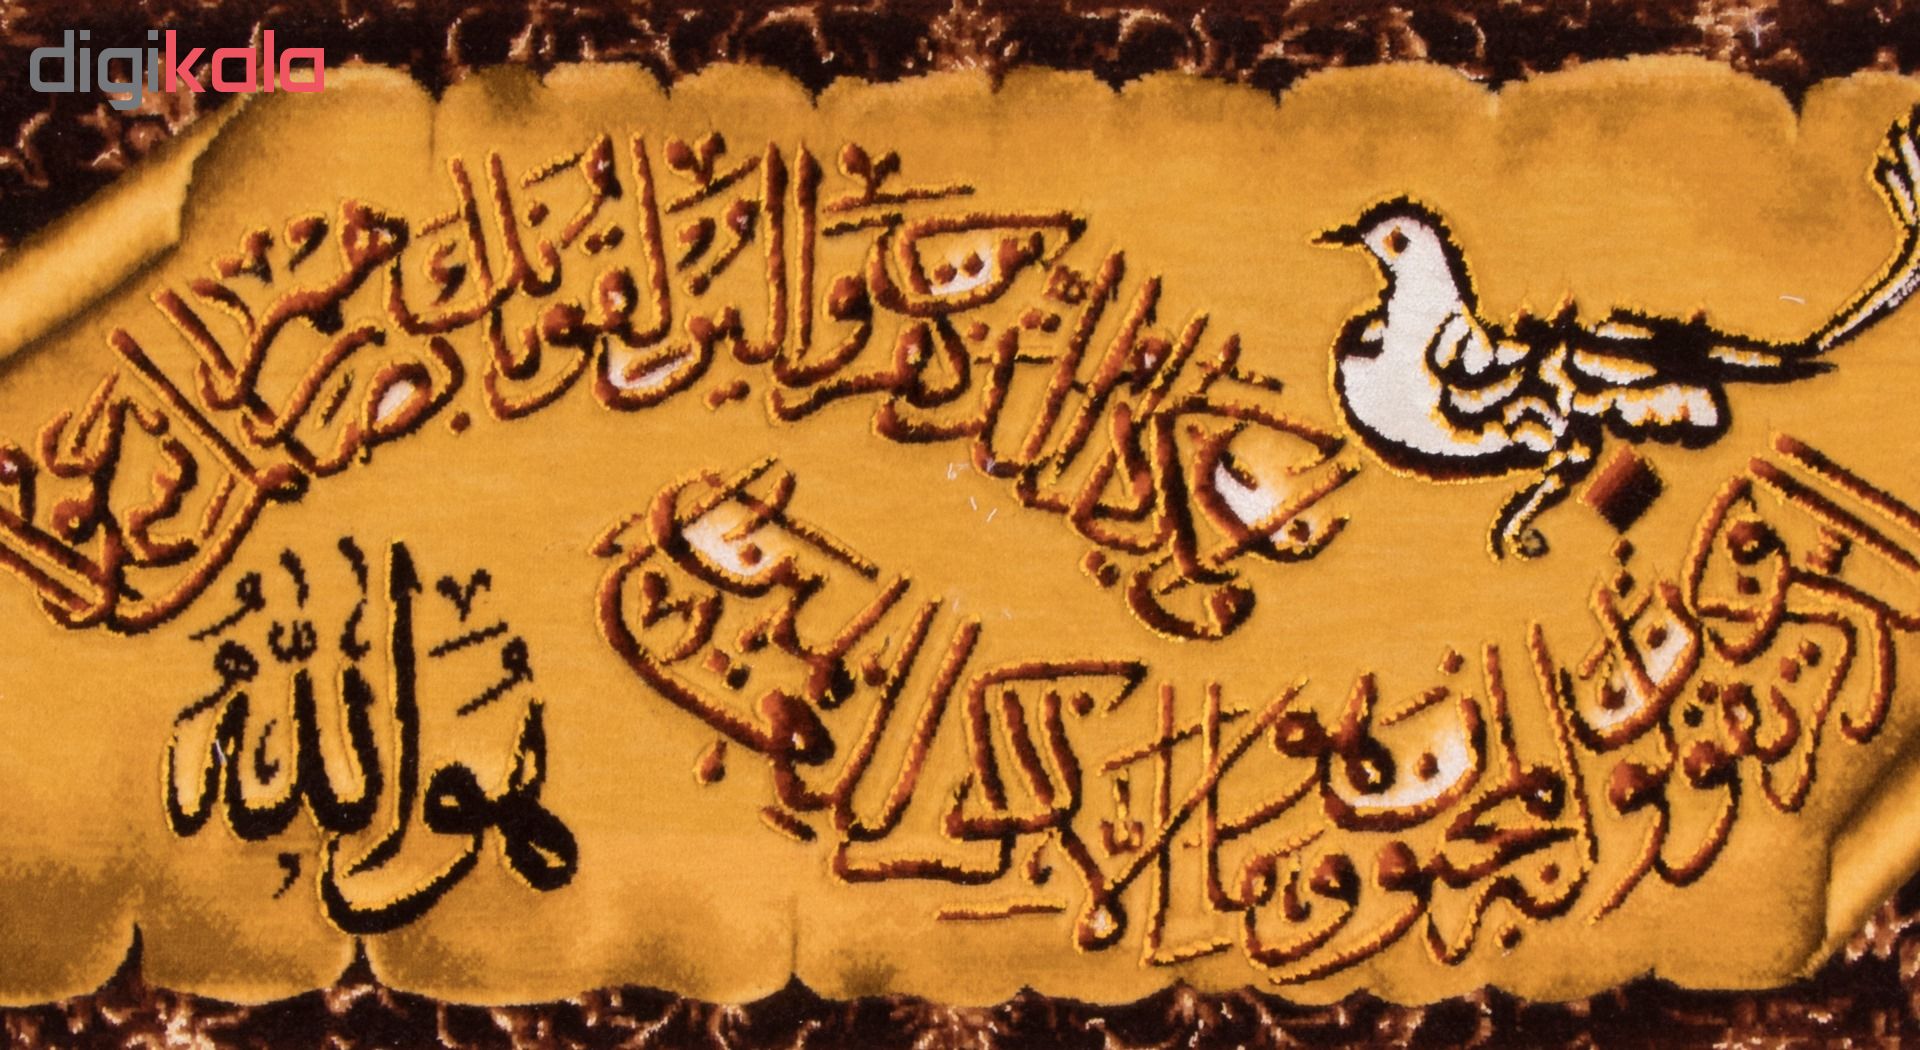 digikala
وان يكاد الذين كفروا ليزلقونك بابصارهم لما سمعوا
الذكر ويقولون انه لمجنون وما هو الا ذكر للعالمين
هُوَ اللّٰهُ